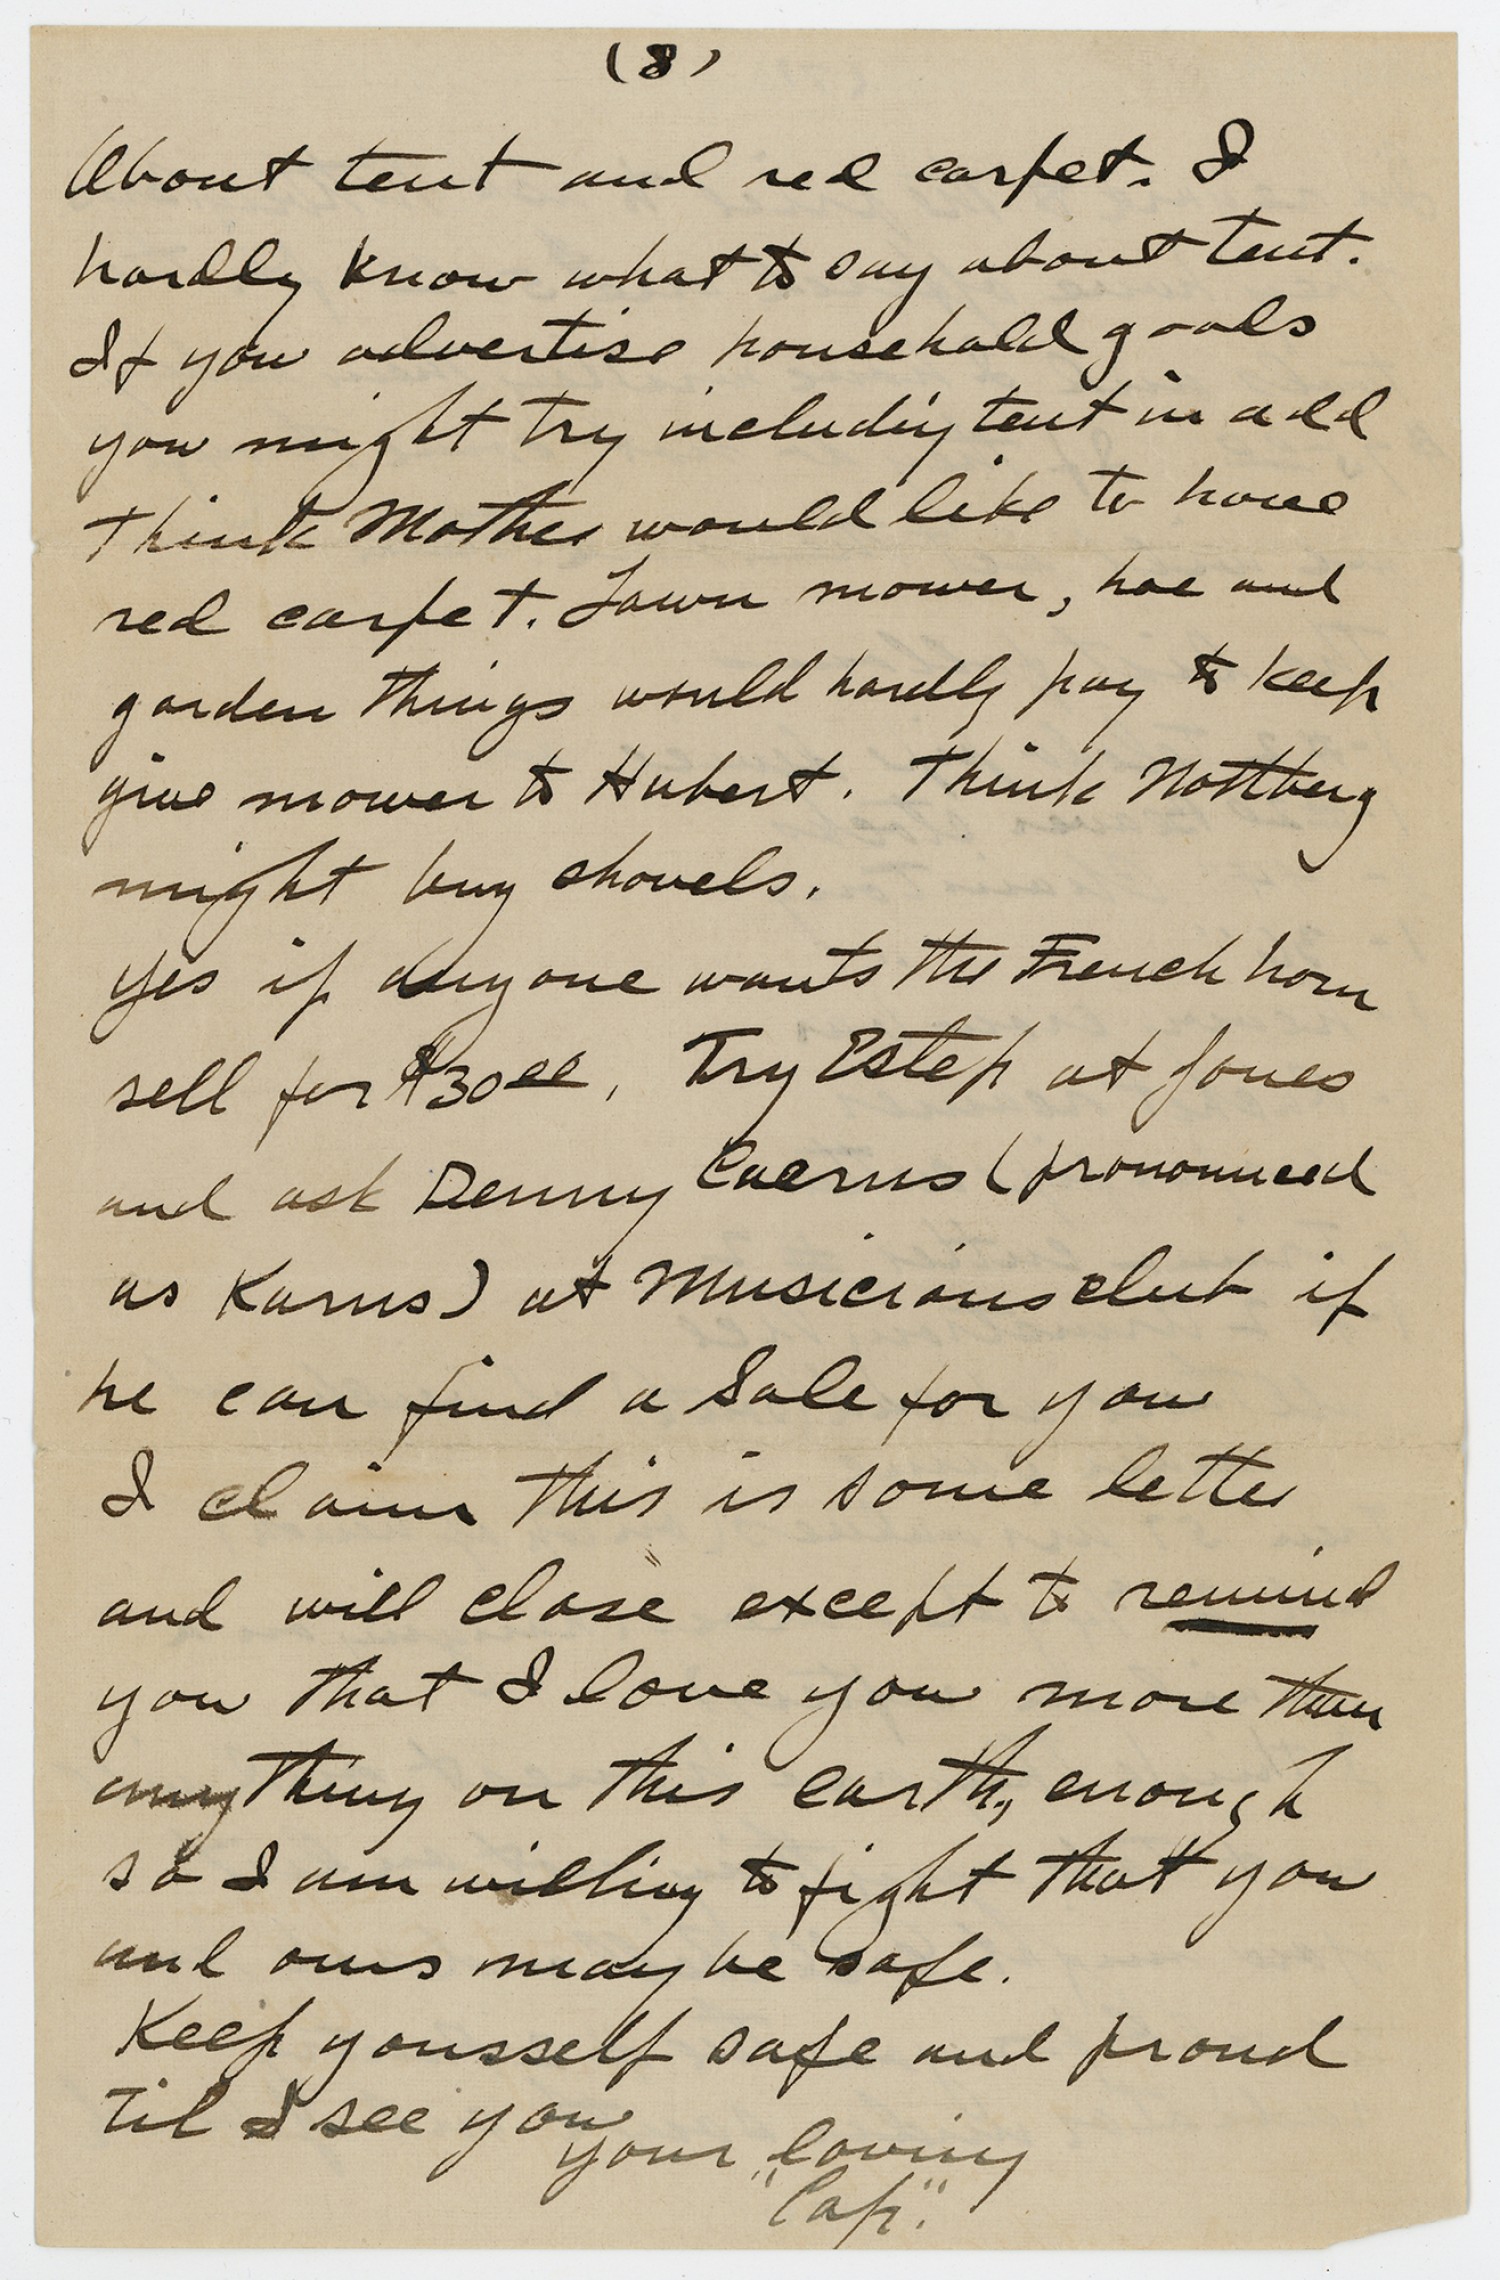 (8)
About tent and red carpet. I
hardly know what to say about tent.
If you advertise household goods
you might try including tent in add
Think Mother would like to have
red carpet. Lawn mower, hoe and
garden things would hardly pay to keep
give mower to Hubert. Think Nottberg
might buy shovels.
Yes if anyone wants the French horn
sell for $30.00. Try Estep at Jones
and ask Denny Caerns (pronounced
as Karns) at Musicians club if
he can find a sale for you
I claim this is some letter
and will close except to remind
you that I love you more than
anything on this earth, enough
so I am willing to fight that you
and ours may be safe.
Keep yoursself safe and proud
til I see you
your loving
"Cap".